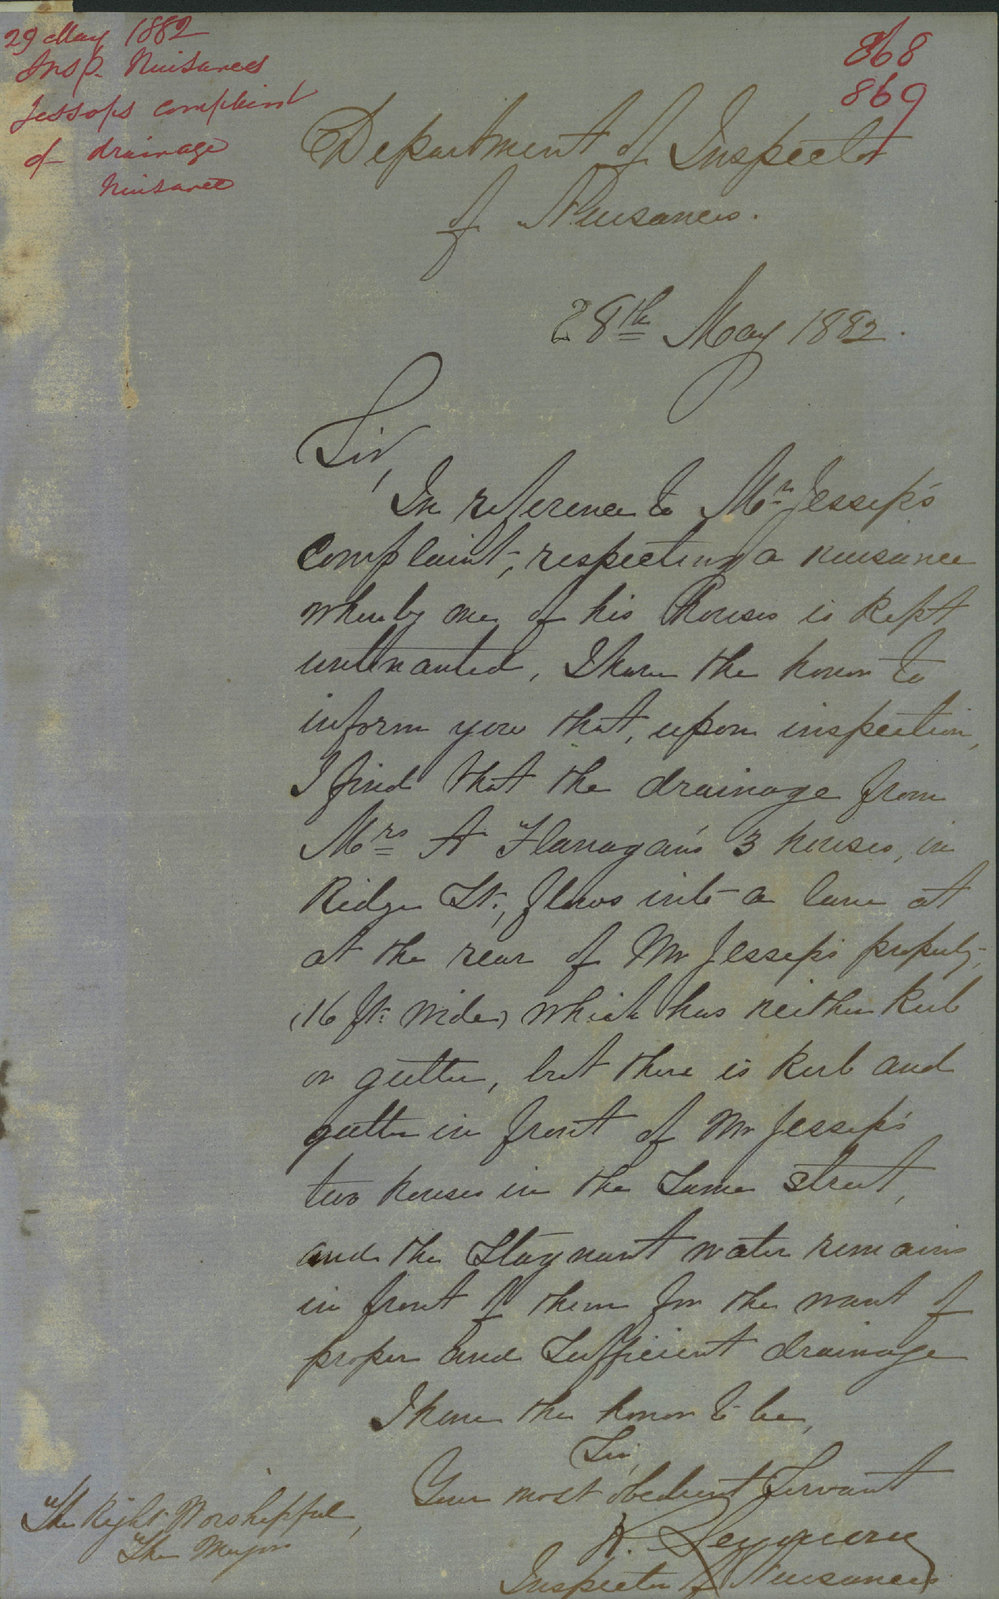 29 May 1882
Insp. Nuisances
Jessops complaint
of drainage
Nuisance
868
869
Department of Inspector
of Nuisances.
28th May 1882.
Sir,
In reference to Mr Jessep's
complaint, respecting a nuisance
whereby one of his houses is kept
untenanted, I have the honor to
inform you that, upon inspection,
I find that the drainage from
Mrs A Flanagan's 3 houses, in
Ridge St., flows into a lane at
at the rear of Mr Jessep's property,
(16 ft. wide) which has neither kerb
or gutter, but there is kerb and
gutter in front of Mr Jessep's
two houses in the same street,
and the stagnant water remains
in front of them for the want of
proper and sufficient drainage
I have the honor to be,
Sir,
Your most obedient Servant
R. Seymour
Inspector of Nuisances
The Right Worshipful,
The Mayor